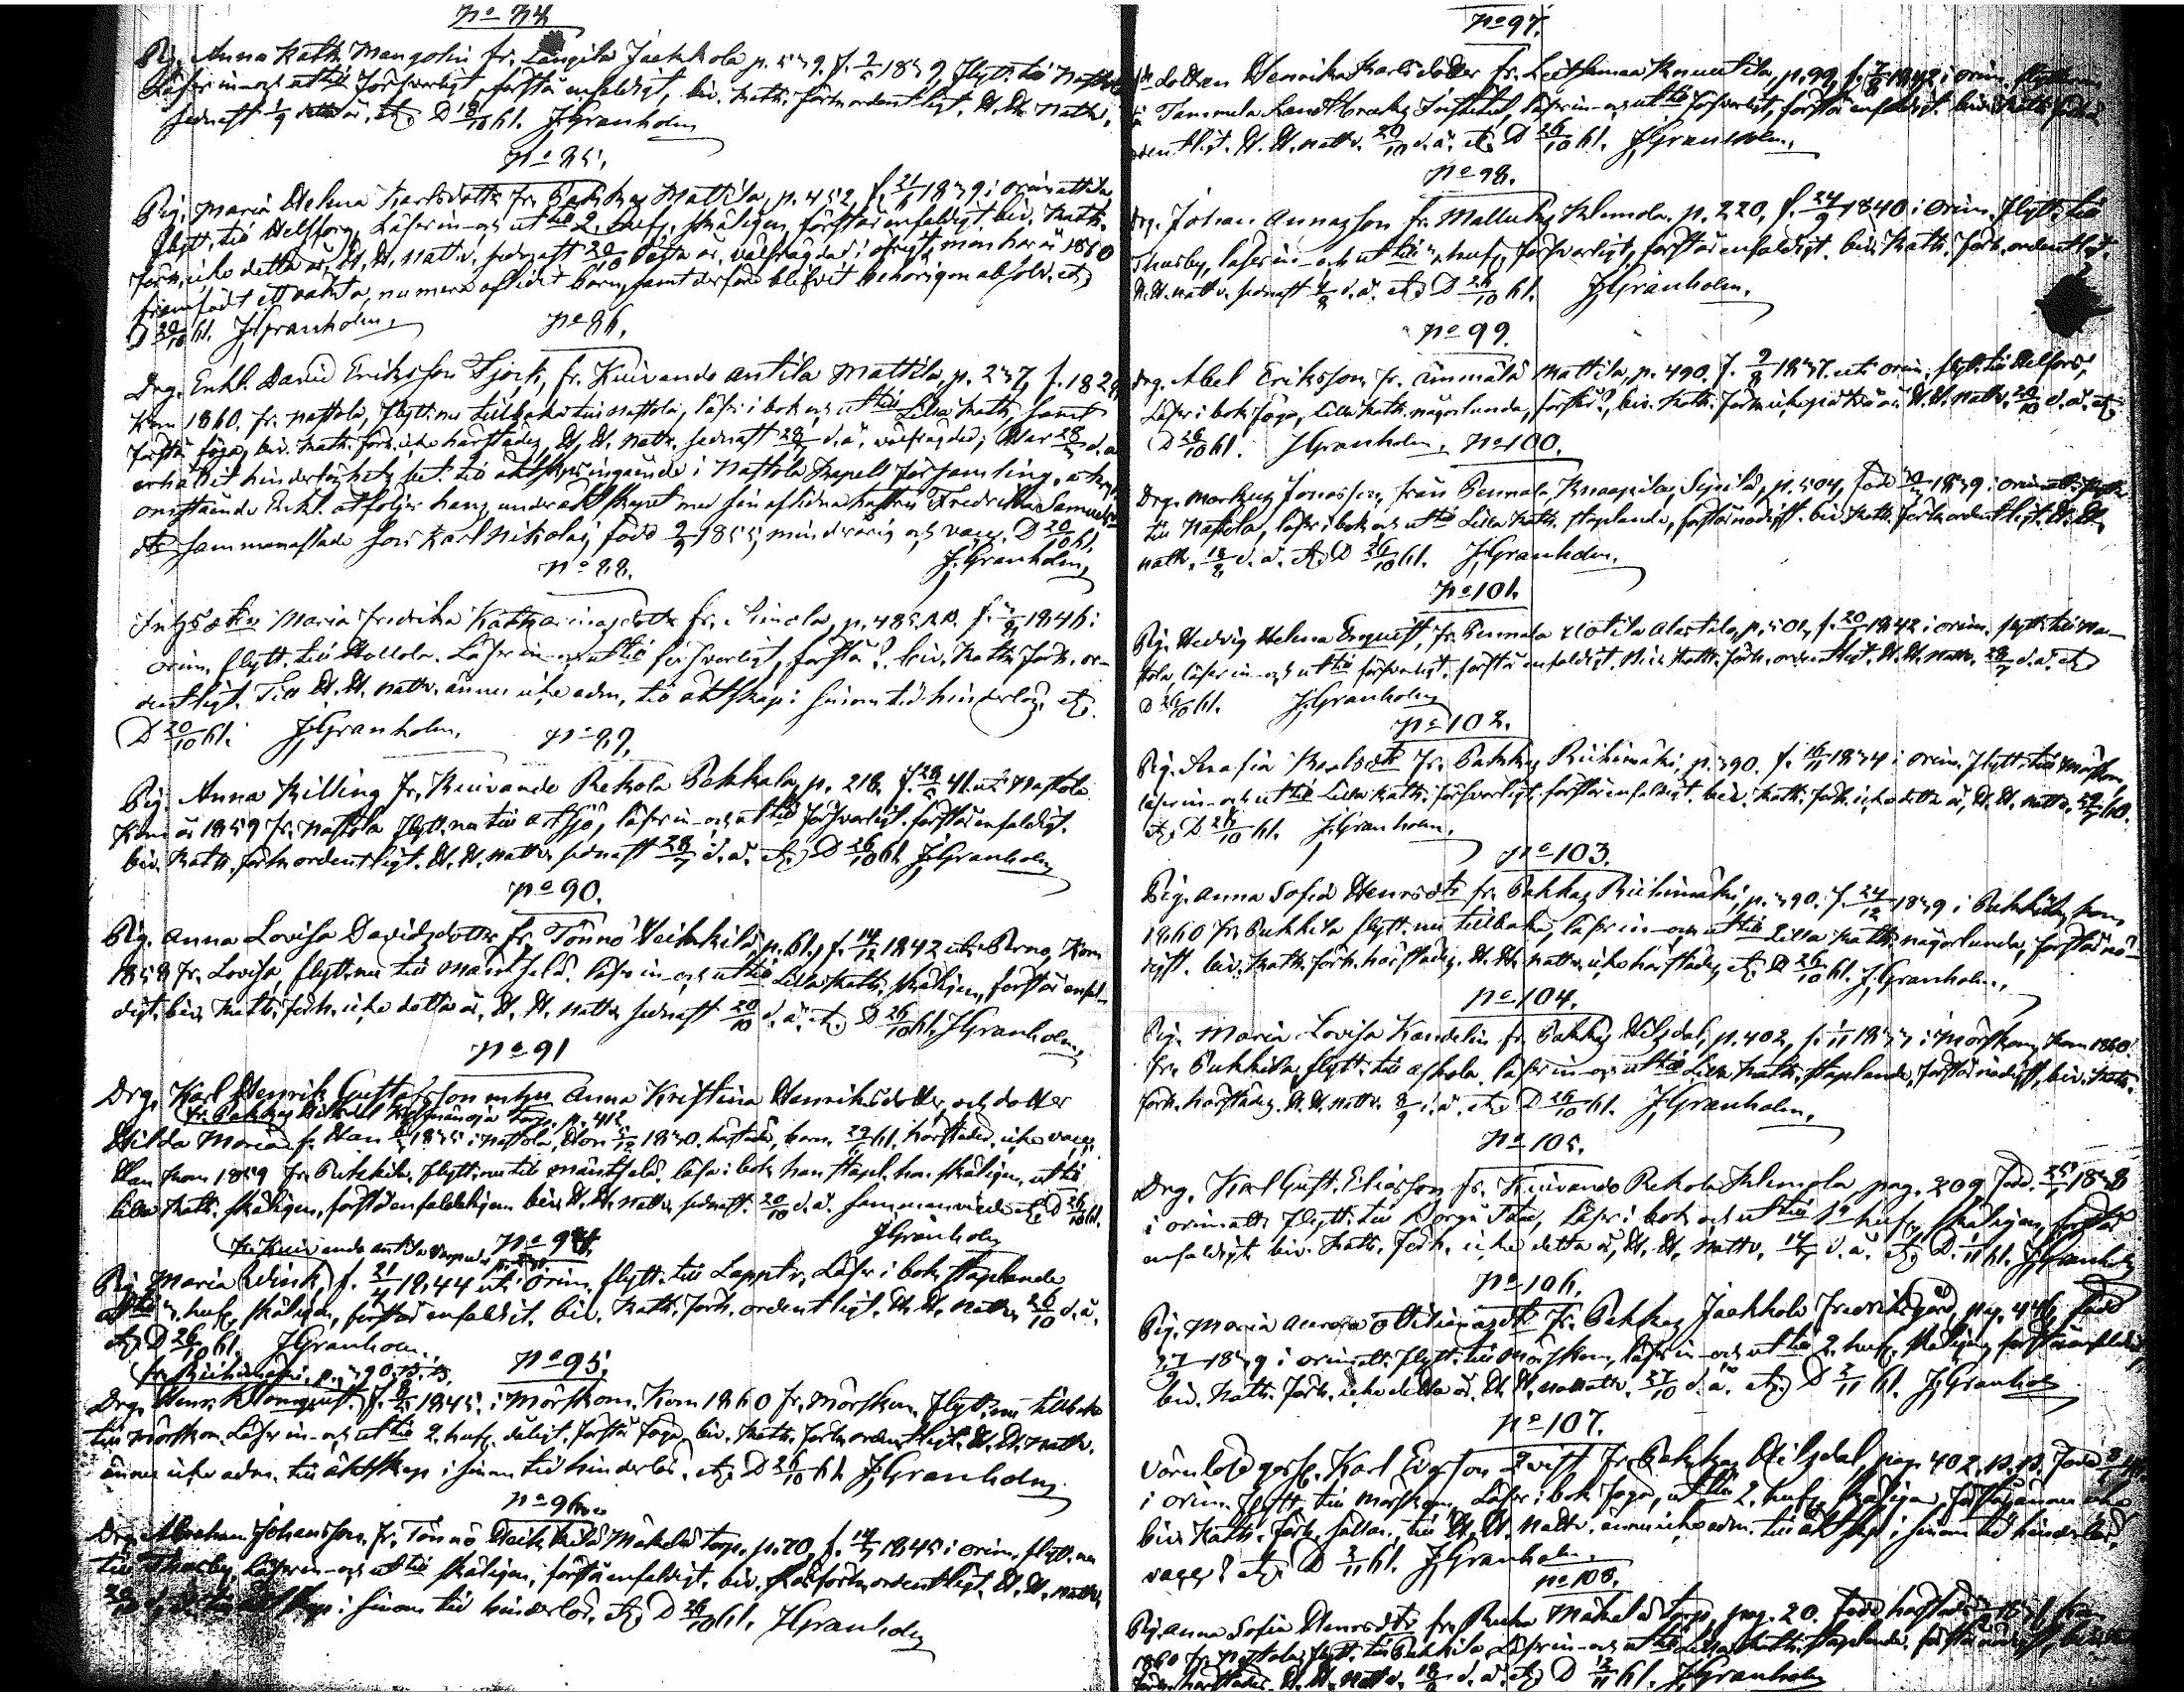 No 74
Pig. Anna Kath. Mangolin fr. Längilä Jaakkola p. 579. f. 1839, flytt. till
Läser in- och ut till försvarligt, förstår enfaldigt, biv. Kath. förh. ordentligt, H. H. Nattv.
sednast i. å. etc. D 18/10 61. J. Granholm
No 85.
Pig. Maria Helena Karlsdotter fr. Pakkas Mattila, p. 452, f. 21/ 1839 i Orimattila
flytt. till Helsforg, Läser in- och ut till 2. huf. skäligen, förstår enfaldigt, biv. Kath.
förh. icke detta år, H. H. nattv. sednast 20/10 detta år, välfrägdad; men har år 1860
framfödt ett oäkta, numera aflidit barn, samt derföre blifvit behörigen absolv. etc.
D 20/10 61. J. Granholm.
No 86.
Drg. Enkl. David Eriksson Sjöck, fr. Kuivando Antila Mattila, p. 237, f. 182
Kom 1860. fr. Nastola, flytt. nu tillbaka till Nastola, läser i bok och ut till Lilla Kath. samt
förstår föga, biv. Kath. förh. icke härstädes, H. H. nattv. sednast 28/ d. å. välfrägdad; Har 28/ d. å
erhållit hinderlöshets bet. till äktskaps ingående i Nastola Kapell församling,
omstående Enkl. åtföljer hans under äktskapet med sin aflidna hustru Fredrika Samuels
dtr sammanaflade son Karl Nikolai, född 9/9 1855, minderårig och vacc. D 20/10 61.
J. Granholm
No 88.
Maria Fredrika Katharinasdotter fr. p. 485. f. 1846 i
Orim. flytt. till Hollola. Läser in- och ut till försvarligt, förstår?, biv. Kath. förh. or-
dentligt. Till H. H. nattv. ännu icke adm. till äktskap i sinom tid hinderlös. etc.
D 20/10 61. J. Granholm.
No 89.
Pig. Anna Killing fr. Kuivando Rekola Pekkala, p. 218, f. 28/ 41. uti Nastola
Kom år 1859 fr. Nastola flytt. nu till Artsjö, läser in- och ut till försvarligt. förstår enfaldigt.
biv. Kath. förh. ordentligt. H. H. nattv. sednast 28/7 d. å. etc. D 26/10 61. J. Granholm
No 90.
Pig. Anna Lovisa Davidsdotter fr. Tönnö Heikkilä, p. 61, f. 14/12 1842 uti Perno, Kom
1858 fr. Lovisa, flytt. nu till Mäntsälä. läser in- och ut till Lilla Kath. skäligen, förstår enfal-
digt, biv. Kath. förh. icke detta år, H. H. nattv. sednast 20/10 d. å. etc. D 26/10 61. J. Granholm
No 91
Drg. Karl Henrik Gustafsson m. hu. Anna Kristina Henriksdotter och dotter
fr. Pakkas torp. p. 412
Hilda Maria f. Han 1835 i Nastola, Hon 1830. härstädes, barn. 29/ 61. härstädes, icke vacc.
Han Kom 1859 fr. Pukkila, flytt. nu till Mäntsälä. läser i bok han stapl. hon skäligen, ut till
Lilla Kath. skäligen, förstå enfaldeligen biv. H. H. nattv. sednast 20/10 d. å. sammanvigde etc. D 26/10 61.
J. Granholm
fr. Kuivando Antila
No 94.
Pig. Maria Wink f. 21/4 1844 uti Orim. flytt. till Lapptr. Läser i bok staplande
ut till 3. huf. skäligen, förstår enfaldigt. biv. Kath. förh. ordentligt. H. H. nattv. 26/10 d. å.
etc. D 26/10 61. J. Granholm.
fr. Riihimäki. p. 390.
No 95.
Drg. Henr. Blomquist. f. 1845. i Mörskom. Kom 1860 fr. Mörskom. flytt. nu tillbaka
till Mörskom. Läser in- och ut till 2. huf. dåligt. förstår föga, biv. Kath. förh. ordentligt. H. H. Nattv.
ännu icke adm. till äktskap i sinom tid hinderlös. etc. D 26/10 61 J. Granholm
No 96.
Drg. Abraham Johansson, fr. Tönnö Heikkilä Mäkelä torp, p. 70, f. 14/ 1845 i Orim. flytt. nu
till Thusby, läser in- och ut till skäligen, förstår enfaldigt. biv. Läsförh. ordentligt. H. H. nattv.
till äktskap i sinom tid hinderlös. etc. D 26/10 61. J. Granholm
No 97.
Dottern Henrika Karlsdotter fr. Leitsamaa Knuutila, p. 99, f. 1842 i Orim.
Tammela Landtbruks Institut, läser in- och ut till försvarligt, förstår enfaldigt. biv. Kath. förh.
ordentligt. H. H. nattv. 20/10 d. å. etc. D 26/10 61. J. Granholm.
No 98.
Drg. Johan Annasson fr. Mallusby Klemola, p. 220, f. 24/9 1840 i Orim. flytt. till
Thusby, läser in- och ut till huf. försvarligt, förstår enfaldigt. biv. Kath. förh. ordentligt.
H. H. nattv. sednast 4/8 d. å. etc. D 26/10 61. J. Granholm.
No 99.
Drg. Abel Eriksson fr. Ämmälä Mattila, p. 490. f. 9/8 1837. uti Orim. flytt. till Helsfors,
Läser i bok föga, Lilla Kath. någorlunda, förstår?, biv. Kath. förh. icke på två år. H. H. nattv. 20/10 d. å. etc.
D 26/10 61. J. Granholm. No 100.
Drg. Markus Jonasson, från Pennala Knaapila, Sipilä, p. 504, född 1839 i Orimatt. flytt.
till Nastola, läser i bok och ut till Lilla Kath. staplande, förstår nödigt. biv. Kath. förh. ordentligt. H. H.
nattv. 18/8 d. å. etc. D 26/10 61. J. Granholm.
No 101.
Pig. Hedvig Helena Enquist, fr. Pennala Alastalo, p. 501, f. 20/ 1842 i Orim. flytt. till Na-
stola, läser in- och ut till försvarligt. förstår enfaldigt. biv. Kath. förh. ordentligt. H. H. nattv. 28/7 d. å. etc.
D 26/10 61. J. Granholm
No 102.
Pig. Serafia Karlsdtr fr. Pakkas Riihimäki, p. 390. f. 16/11 1834 i Orim. flytt. till Mörskom,
läser in- och ut till Lilla Kath. försvarligt, förstår enfaldigt. biv. Kath. förh. icke detta år, H. H. nattv. 60.
etc. D 26/10 61. J. Granholm.
No 103.
Pig. Anna Sofia Henrsdtr fr. Pakkas Riihimäki, p. 390. f. 24/12 1839 i Pukkila, kom
1860 fr. Pukkila flytt. nu tillbaka, läser in- och ut till Lilla Kath. någorlunda, förstår nö-
digt. biv. Kath. förh. härstädes. H. H. nattv. icke härstädes, etc. D 26/10 61. J. Granholm.
No 104.
Pig. Maria Lovisa Kandelin fr. Pakkas Hilsdal, p. 402, f. 1833 i Mörskom, kom 1860.
fr. Pukkila, flytt. till Askola. läser in- och ut till Lilla Kath. staplande, förstår nödigt, biv. Kath.
förh. härstädes. H. H. nattv. 8/9 d. å. etc. D 26/10 61. J. Granholm.
No 105.
Drg. Karl Gust. Eliasson fr. Kuivando Rekola Klemola pag. 209 född. 25/ 1838
i Orimatt. flytt. till Borgå Stad, Läser i bok och ut till huf. skäligen, förstår
enfaldigt. biv. Kath. förh. icke detta år, H. H. nattv. 14/ d. å. etc. D. /11 61. J. Granholm
No 106.
Pig. Maria Aurora Ottilianasdtr fr. Pakkas Jaakkola Fredriksgård, pag. 446, född
1839 i Orimatt. flytt. till Mörskom, läser in- och ut till 2. huf. skäligen, förstår enfaldigt
biv. Kath. förh. icke detta år. H. H. nattv. 27/10 d. å. etc. D 2/11 61. J. Granholm
No 107.
Värnlöse goss. Karl Evasson Qvist fr. Pakkas Hilsdal, pag. 402. född
i Orim. flytt. till Mörskom, Läser i bok föga, ut till 2. huf. skäligen, förstår ännu icke
biv. Kath. förh. sällan, till H. H. nattv. ännu icke adm. till äktskap i sinom tid hinderlös.
vacc? etc. D 2/11 61. J. Granholm.
No 108.
Pig. Anna Sofia Henrsdtr fr. Mäkelä torp, pag. 20. född härstädes kom
1860 fr. Nastola, flytt. till Pukkila, Läser in- och ut till Lilla Kath. staplande, förstår nödigt,
förh. härstädes. H. H. nattv. d. å. etc. D 12/11 61. J. Granholm